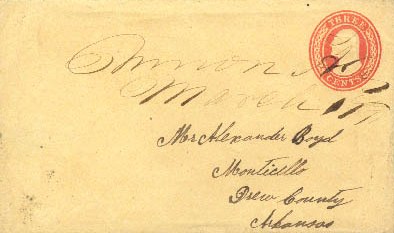 THREE
CENTS
March 17
Mr Alexander Boyd
Monticello
Drew County
Arkansas